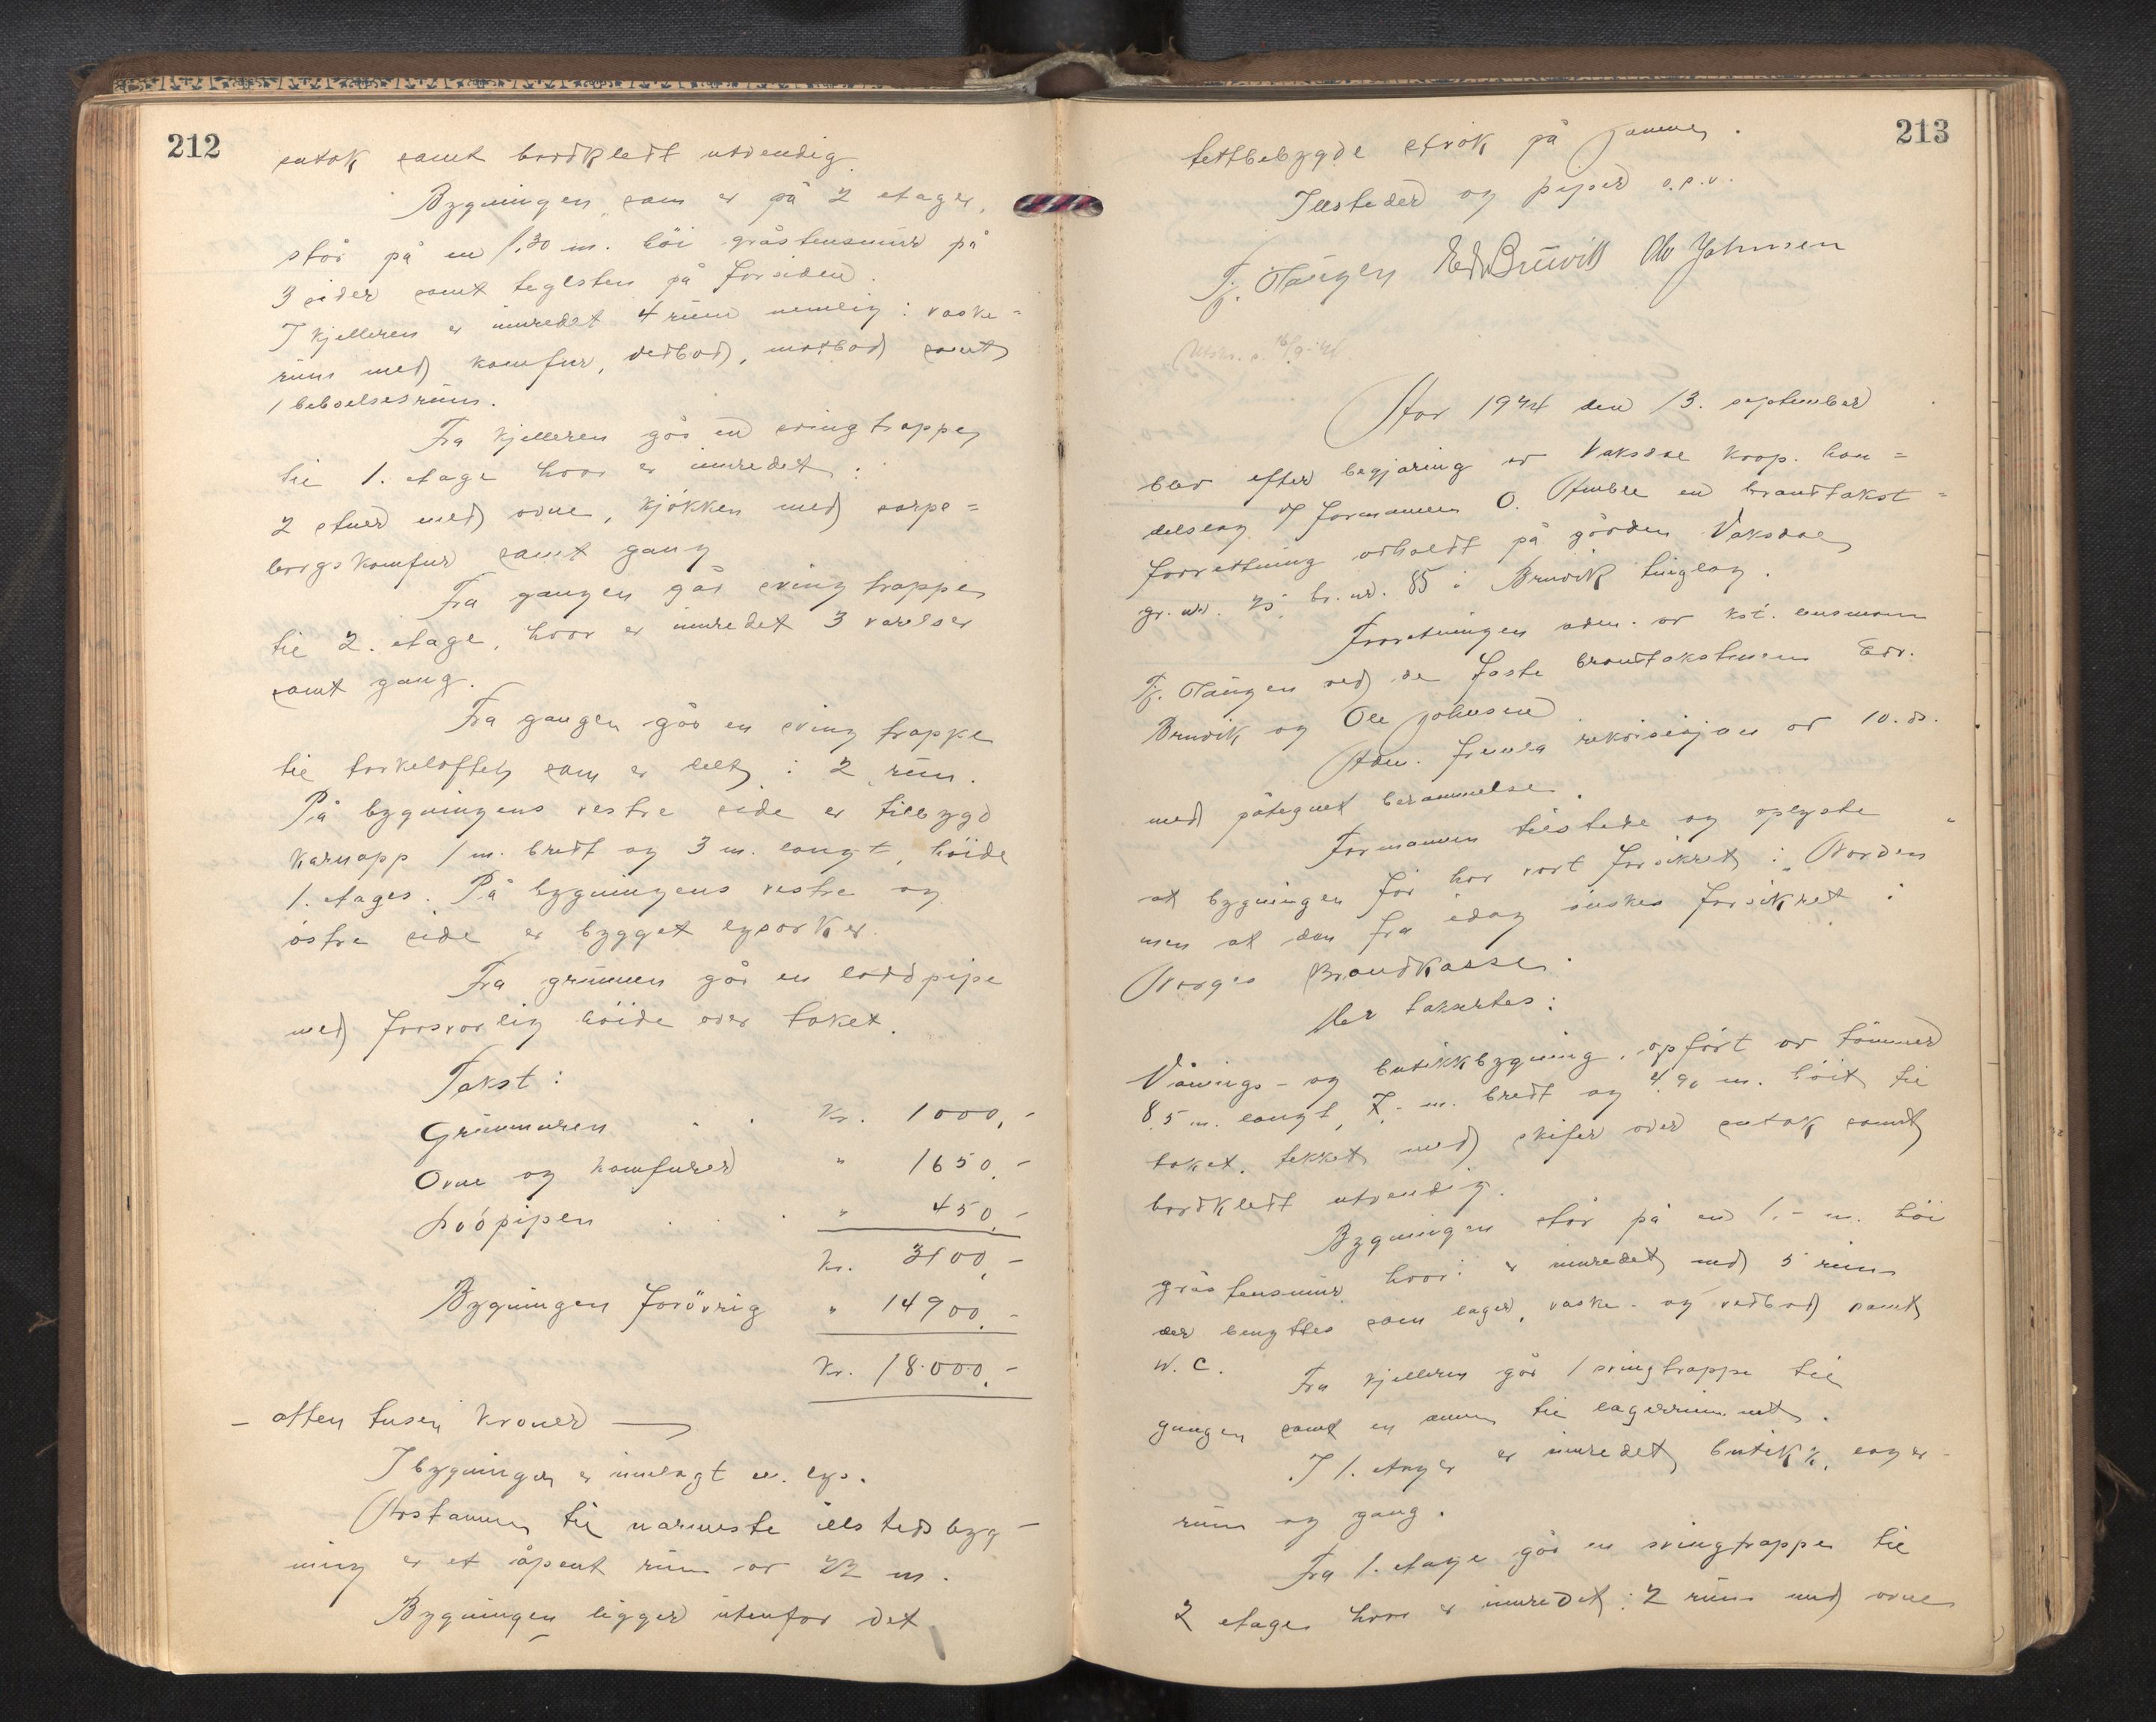 212
sutak samt bordkledt utvendig
Bygningen, som er på 2 etager,
står på en 1,30 m. höi gråstensmur på
3 sider samt teglsten på forsiden.
I kjelleren er innredet 4 rum nemlig: vaske=
rum med komfur, vedbod, matbod samt
1 beboelsesrum.
Fra kjelleren går en svingtrappe
til 1. etage hvor er innredet:
2 stuer med ovne, kjökken med sarps=
borgskomfur samt gang
Fra gangen går svingtrappe
til 2. etage, hvor er innredet 3 værelser
samt gang.
Fra gangen går en svingtrappe
til törkeloftet som er delt i 2 rum.
På bygningens vestre side er tilbygd
karnapp 1 m. bredt og 3 m. langt, höide
1. etages. På bygningens vestre og
östre side er bygget lysarker.
Fra grunnen går en loddpipe
med forsvarlig höide over taket.
Takst:
Grunnmuren . . Kr. 1000,-
Ovne og komfurer " 1650,-
Lodpipen . . . " 450,-
Kr. 3100,-
Bygningen forövrig " 14900,-
Kr. 18.000,-
- atten tusen kroner -
I bygningen er innlagt el. lys.
Avstannen til nærmeste illstedsbyg-
ning er et åpent rum av 22 m.
Bygningen ligger utenfor det
213
tettbebygde strök på Jamne.
Illsteder og piper o.s.v.
Tj. Stangen Edv Bruvik Ole Johnsen
16/9-44
Aar 1944 den 13. september
blev efter begjæring av Vaksdal koop. han=
delslag v/ formannen O. Stuble en brandtakst=
forretning avholdt på gården Vaksdal
gr. nr. 25 br. nr. 85 i Bruvik tinglag.
Forretningen adm. av kst. lensmann
Tj. Stangen ved de faste brandtakstmenn Edv.
Bruvik og Ole Johnsen
Adm. fremla rekvisisjon av 10. ds.
med påtegnet berammelse.
Formannen tilstede og oplyste
at bygningen för har vært forsikret i "Norden"
men at den fra idag önskes forsikret i
Norges Brandkasse.
Der takseres:
Vånings- og butikkbygning, opfört av tömmer
8,5 m. langt, 7,- m. bredt og 4,90 m. höit til
taket, tekket med skifer over sutak samt
bordkledt utvendig.
Bygningen står på en 1,- m. höi
gråstensmur hvori er innredet med 5 rum
der benyttes som lager, vaske- og vedbod samt
W.C.
Fra kjelleren går 1 svingtrappe til
gangen samt en annen til lagerrummet.
I 1. etage er innredet butikk, lager-
rum og gang.
Fra 1. etage går en svingtrappe til
2 etage hvor er innredet: 2 rum med ovne